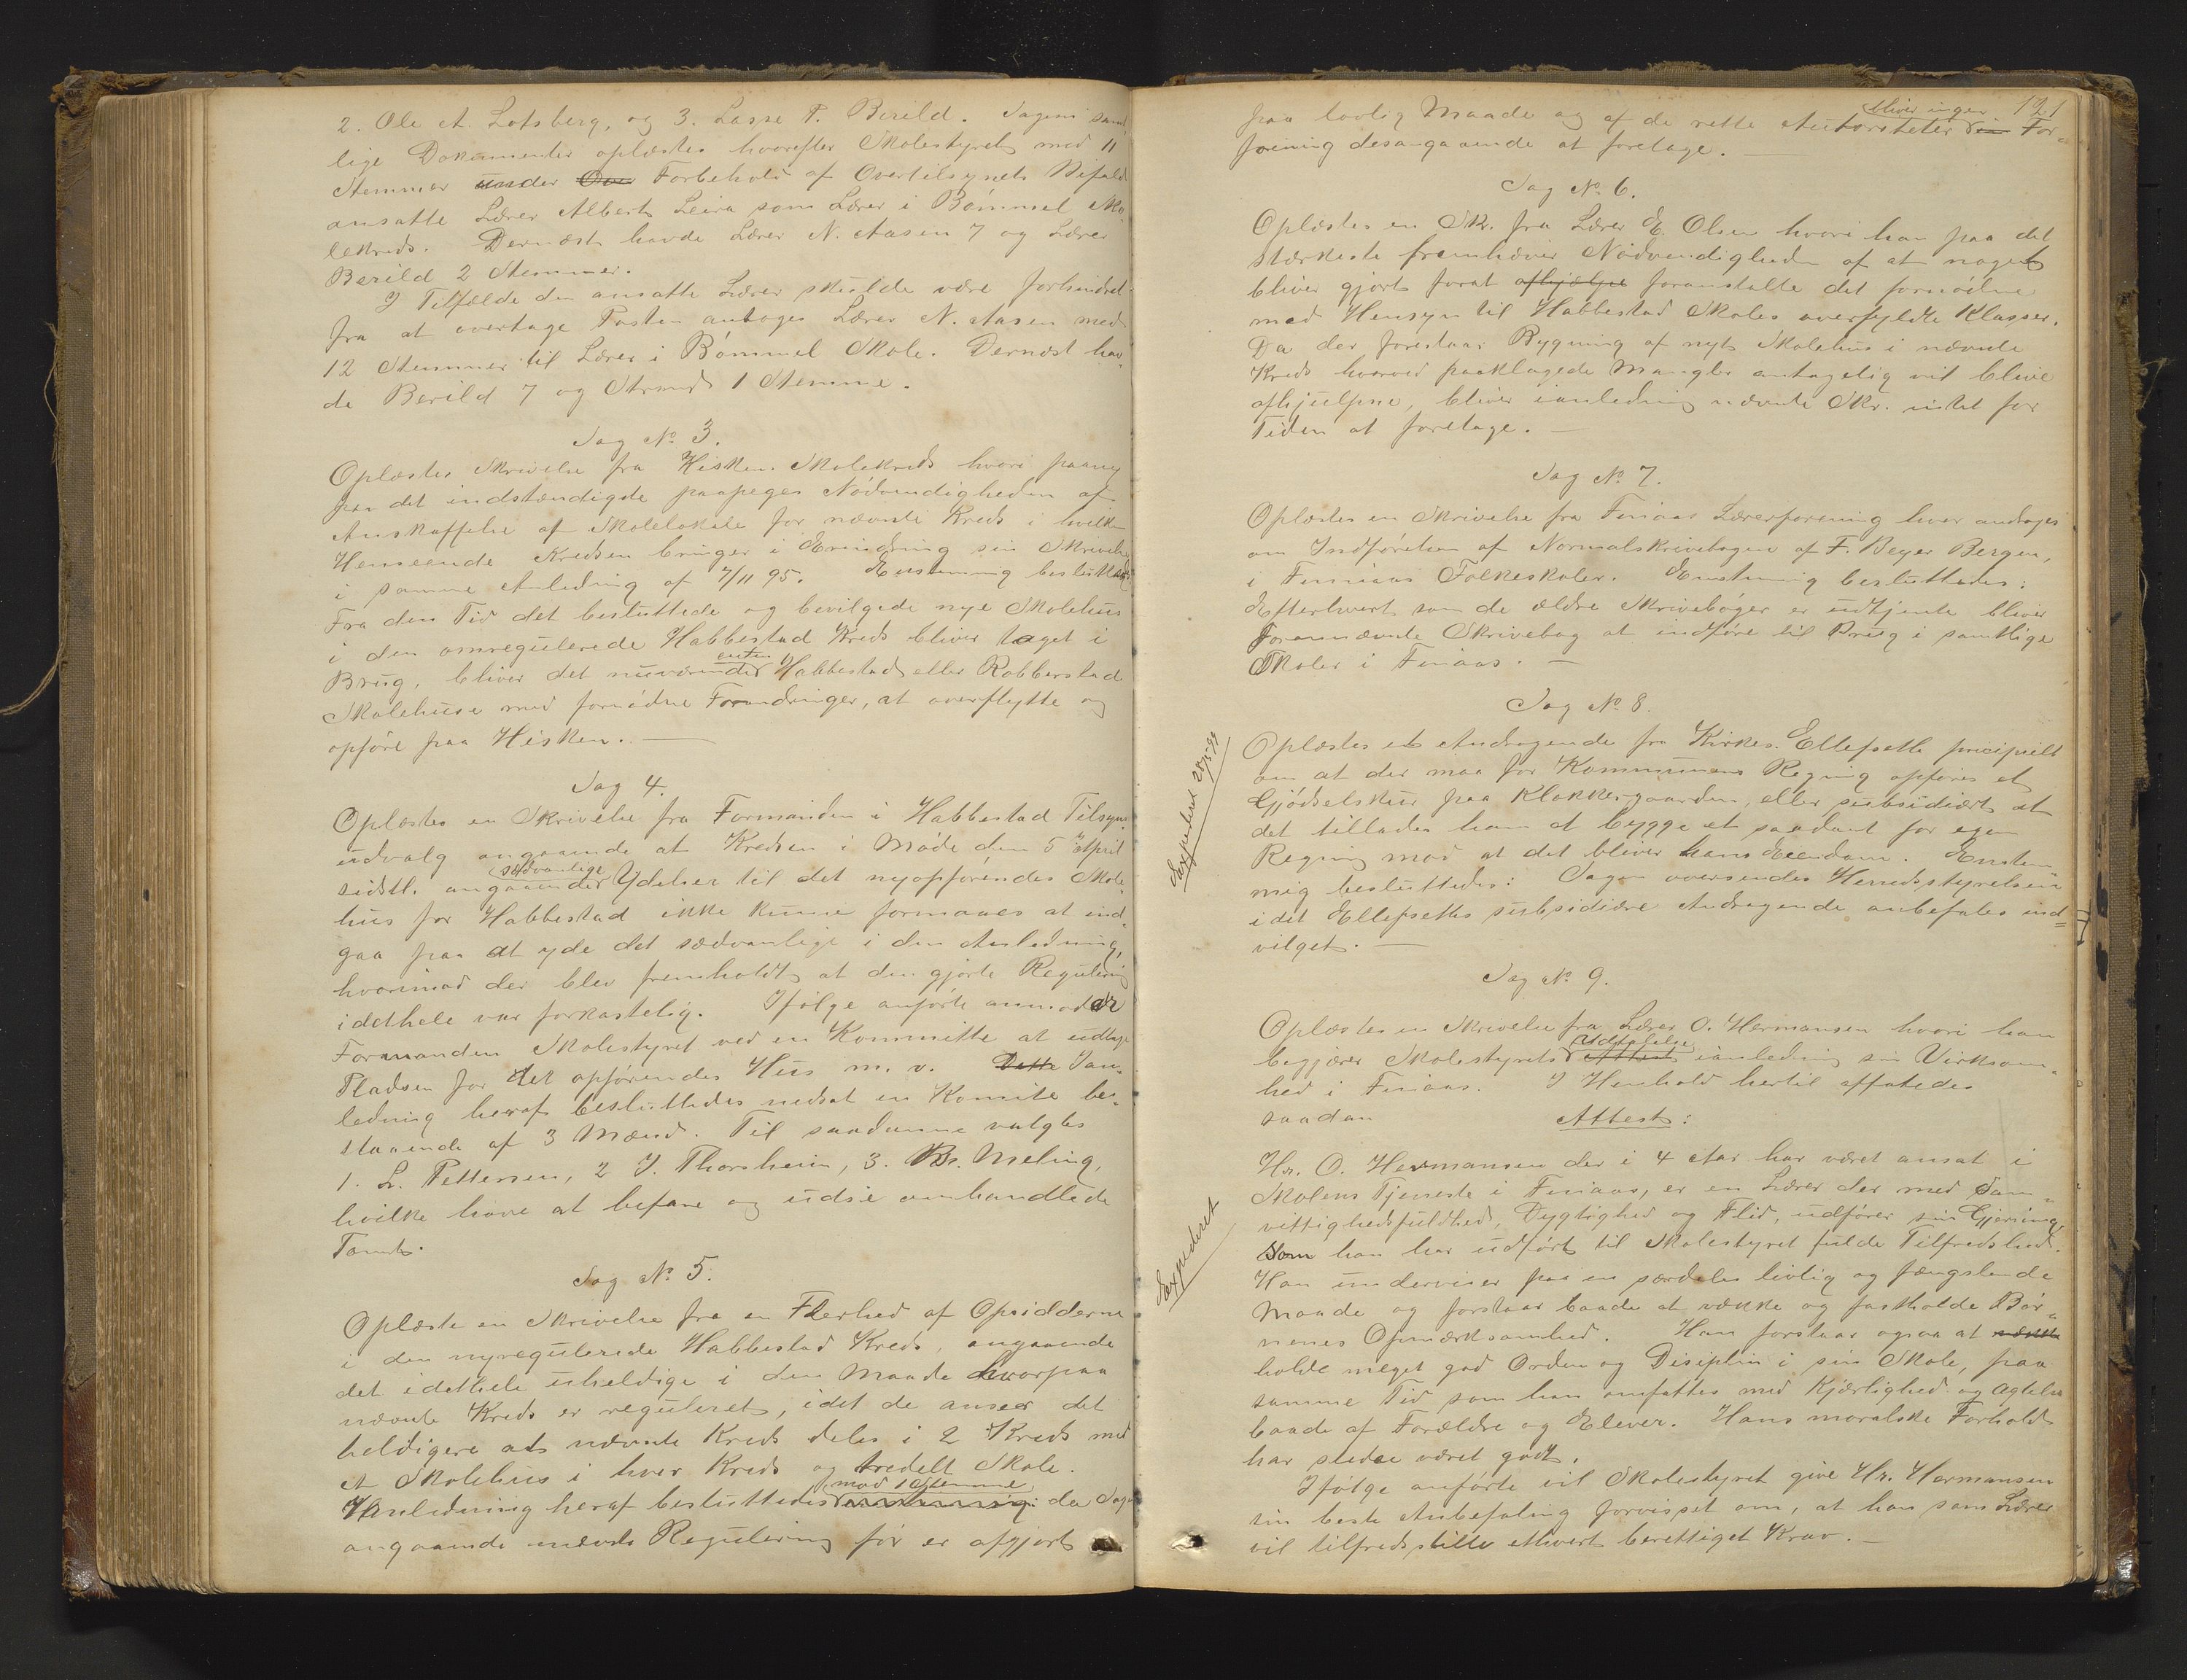 2. Ole A. Lotsberg, og 3. Lasse T. Berild. Sagens samt
lige Dokumenter oplæstes hvorefter Skolestyret med 11
Stemmer under Over Forbehold af Overtilsynets Bifald
ansatte Lærer Albert Leira som Lærer i Bømmel Sko-
lekreds. Dernæst havde Lærer N. Aasen 7 og Lærer
Berild 2 Stemmer.
I Tilfælde den ansatte Lærer skulde være forhindret
fra at overtage Posten antoges Lærer N. Aasen med
12 Stemmer til Lærer i Bømmel Skole. Dernæst hav-
de Berild 7 og Strand 1 Stemme.
Sag No 3.
Oplæstes Skrivelse fra Hisken Skolekreds hvori paany
paa det indstændigste paapeges Nødvendigheden af
Anskaffelse af Skolelokale for nævnte Kreds i hvilken
Henseende Kredsen bringer i Erindring sin Skrivelse
i samme Anledning af 7/11 95. Enstemmig besluttedes
Fra den Tid det besluttede og bevilgede nye Skolehus
i den omregulerede Habbestad Kreds bliver taget i
Brug, bliver det nuværende enten Habbestad eller Robberstad
Skolehuse med fornødne Forandringer, at overflytte og
opføre paa Hisken. —
Sag 4.
Oplæstes en Skrivelse fra Formanden i Habbestad Tilsyns-
udvalg angaaende at Kredsen i Møde den 5te April
sidstl. angaaende sædvanlige Ydelser til det nyopførendes Skole-
hus for Habbestad ikke kunne formaaes at ind-
gaa paa at yde det sædvanlige i den Anledning,
hvorimod der blev fremholdt at den gjorte Regulering
idethele var forkastelig. Ifølge anførte anmoder
Formanden Skolestyret ved en Kommitte at udtage
Pladsen for det opførendes Hus m. v. Dette Ian-
ledning heraf besluttedes nedsat en Komite be-
staaende af 3 Mænd. Til saadanne valgtes
1. L. Pettersen, 2 J. Thorsheim, 3. Br. Meling,
hvilke have at befare og udse omhandlede
Tomt.
Sag No 5.
Oplæste en Skrivelse fra en Flerhed af Opsidderne
i den nyregulerede Habbestad Kreds, angaaende
det idethele uheldige i den Maade hvorpaa
nævnte Kreds er reguleret, idet de anseer det
heldigere at nævnte Kreds deles i 2 Kreds med
et Skolehus i hver Kreds og tredelt Skole.
I Anledning heraf besluttedes mod 1 Stemme enstemmig: da Sagen
angaaende nævnte Regulering før er afgjort
121
paa lovlig Maade og af de rette Autoriteter bliver ingen For-
føining desangaaende at foretage. —
Sag No 6.
Oplæstes en Skr. fra Lærer E. Olsen hvori han paa det
stærkeste fremhæver Nødvendigheden af at noget
bliver gjort forat afhjælpe foranstalte det fornødne
med Hensyn til Habbestad Skoles overfyldte Klasser.
Da der forestaar Bygning af nyt Skolehus i nævnte
Kreds hvorved paaklagede Mangler antagelig vil blive
afhjulpne, bliver ianledning nævnte Skr. intet for
Tiden at foretage. —
Sag No 7.
Oplæstes en Skrivelse fra Finaas Lærerforening hvor andrages
om Indførelsen af Normalskrivebogen af F. Beyer Bergen,
i Finaas Folkeskoler. Enstemmig besluttedes:
Efterhvert som de ældre Skrivebøger er udtjente bliver
forannævnte Skrivebog at indføre til Brug i samtlige
Skoler i Finaas. —
Sag No 8.
Expederet 28/5 99
Oplæstes et Andragende fra Kirkes. Ellefsette pricipielt
om at der maa for Kommunens Regning opføres et
Gjødselskur paa Klokkergaarden, eller subsidiært at
det tillades ham at bygge et saadant for egen
Regning mod at det bliver hans Eiendom. Enstem-
mig besluttedes: Sagen oversendes Herredsstyrelsen
idet Ellefsettes subsidiære Andragende anbefales ind-
vilget. —
Sag No 9.
Oplæstes en Skrivelse fra Lærer O. Hermansen hvori han
begjærer Skolestyrets Udtalelse Attest ianledning sin Virksom-
hed i Finaas. I Henhold hertil affatedes
saadan Attest:
Expederet
Hr. O. Hermansen der i 4 Aar har været ansat i
Skolens Tjeneste i Finaas, er en Lærer der med Sam-
vittighedsfuldhed, Dygtighed og Flid, udfører sin Gjerning,
som han har udført til Skolestyret fulde Tilfredshed.
Han underviser paa en særdeles livlig og fængslende
Maade og forstaar baade at vække og fastholde Bør-
nenes Opmærksomhed. Han forstaar ogsaa at
holde meget god Orden og Disiplin i sin Skole, paa
samme Tid som han omfattes med Kjærlighed og Agtelse
baade af Forældre og Elever. Hans moralske Forhold
har stedse været godt.
Ifølge anførte vil Skolestyret give Hr. Hermansen
sin beste Anbefaling forvisset om, at han som Lærer
vil tilfredsstille ethvert berettiget Krav. —